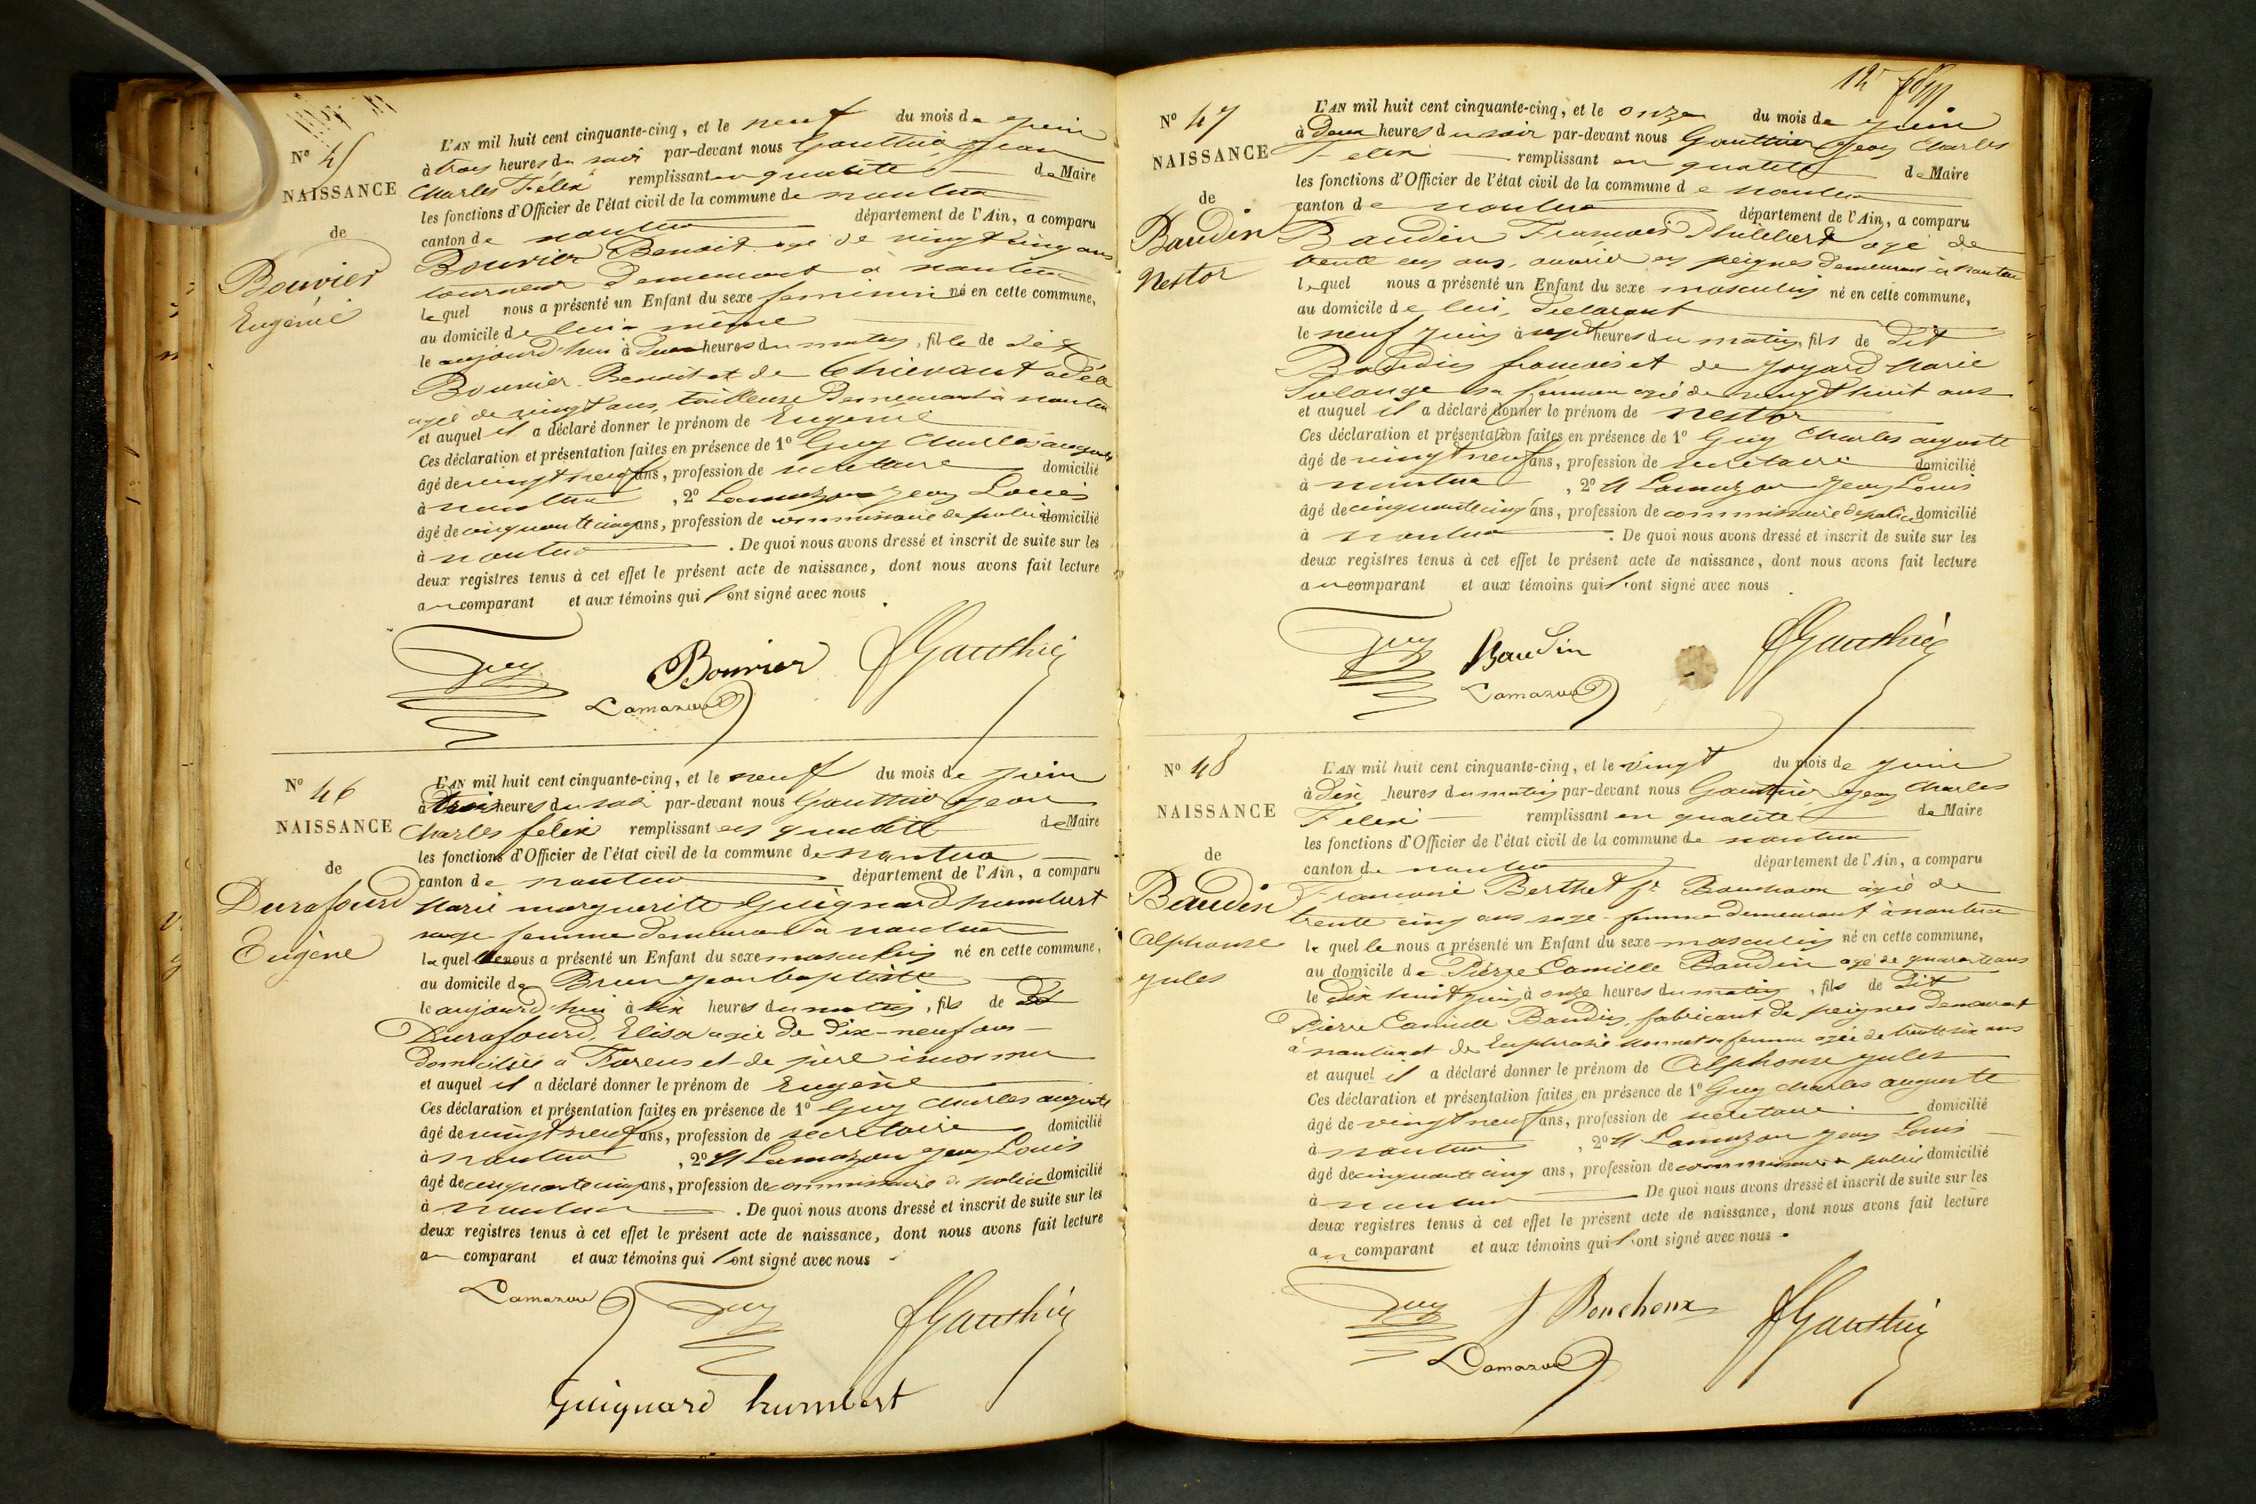 N° 45
NAISSANCE
de
Bouvier
Eugénie
L'AN mil huit cent cinquante-cinq, et le neuf du mois de juin
à trois heures du soir par-devant nous Gauthier Jean
Charles Félix remplissant en qualité de Maire
les fonctions d'Officier de l'état civil de la commune de nantua
canton de nantua département de l'Ain, a comparu
Bouvier Benoit agé de vingt cinq ans
tourneur demeurant à nantua
lequel nous a présenté un Enfant du sexe feminin né en cette commune,
au domicile de lui-même
le aujourd'hui à deux heures du matin, fille de dit
Bouvier Benoit et de Chievant adèle
agée de vingt ans, tailleuse demeurant à nantua
et auquel il a déclaré donner le prénom de Eugenie
Ces déclaration et présentation faites en présence de 1° Guy Charles auguste
âgé de vingt neuf ans, profession de secretaire domicilié
à nantua, 2° Lamazou jean Louis
âgé de cinquante cinq ans, profession de commissaire de police domicilié
à nantua. De quoi nous avons dressé et inscrit de suite sur les
deux registres tenus à cet effet le présent acte de naissance, dont nous avons fait lecture
au comparant et aux témoins qui l'ont signé avec nous
Guy Bouvier JGauthier
Lamazou
N° 46
NAISSANCE
de
Durafourd
Eugène
L'AN mil huit cent cinquante-cinq, et le neuf du mois de juin
à trois heures du soir par-devant nous Gauthier jean
Charles félix remplissant en qualité de Maire
les fonctions d'Officier de l'état civil de la commune de nantua
canton de nantua département de l'Ain, a comparu
Marie marguerite Guignard humbert
sage femme demeurant à nantua
laquelle nous a présenté un Enfant du sexe masculin né en cette commune,
au domicile de Brun jean baptiste
le aujourd'hui à six heures du matin, fils de
Durafourd, Elisa agée de dix-neuf ans
domiciliée à et de père inconnu
et auquel il a déclaré donner le prénom de Eugène
Ces déclaration et présentation faites en présence de 1° Guy Charles auguste
âgé de vingt neuf ans, profession de secretaire domicilié
à nantua, 2° M Lamazou jean Louis
âgé de cinquante cinq ans, profession de commissaire de police domicilié
à nantua. De quoi nous avons dressé et inscrit de suite sur les
deux registres tenus à cet effet le présent acte de naissance, dont nous avons fait lecture
a comparant et aux témoins qui l'ont signé avec nous
Lamazou Guy JGauthier
Guignard humbert
12
N° 47
NAISSANCE
de
Baudin
Nestor
L'AN mil huit cent cinquante-cinq, et le onze du mois de juin
à deux heures du soir par-devant nous Gauthier Jean Charles
Felix remplissant en qualité de Maire
les fonctions d'Officier de l'état civil de la commune de nantua
canton de nantua département de l'Ain, a comparu
Baudin François Philibert agé de
trente ans, ouvrier en peignes demeurant à nantua
lequel nous a présenté un Enfant du sexe masculin né en cette commune,
au domicile de lui, déclarant
le neuf juin à sept heures du matin, fils de dit
Baudin françois et de Joyard Marie
Solange sa femme agée de vingt huit ans
et auquel il a déclaré donner le prénom de Nestor
Ces déclaration et présentation faites en présence de 1° Guy Charles auguste
âgé de vingt neuf ans, profession de secretaire domicilié
à nantua, 2° M Lamazou jean Louis
âgé de cinquante cinq ans, profession de commissaire de police domicilié
à nantua. De quoi nous avons dressé et inscrit de suite sur les
deux registres tenus à cet effet le présent acte de naissance, dont nous avons fait lecture
au comparant et aux témoins qui l'ont signé avec nous
Guy Baudin JGauthier
Lamazou
N° 48
NAISSANCE
de
Baudin
Alphonse
jules
L'AN mil huit cent cinquante-cinq, et le vingt du mois de juin
à dix heures du matin par-devant nous Gauthier jean Charles
Félix remplissant en qualité de Maire
les fonctions d'Officier de l'état civil de la commune de nantua
canton de nantua département de l'Ain, a comparu
Françoise Berthet fe Bouchoux agée de
trente cinq ans sage-femme demeurant à nantua
lequelle nous a présenté un Enfant du sexe masculin né en cette commune,
au domicile de Pierre Camille Baudin agé de quarante ans
le dix huit juin à onze heures du matin, fils de dit
Pierre Camille Baudin, fabricant de peignes demeurant
à nantua et de Euphrasie sa femme agée de trente six ans
et auquel il a déclaré donner le prénom de Alphonse jules
Ces déclaration et présentation faites en présence de 1° Guy charles auguste
âgé de vingt neuf ans, profession de secretaire domicilié
à nantua, 2° M Lamazou jean Louis
âgé de cinquante cinq ans, profession de commissaire de police domicilié
à nantua De quoi nous avons dressé et inscrit de suite sur les
deux registres tenus à cet effet le présent acte de naissance, dont nous avons fait lecture
au comparant et aux témoins qui l'ont signé avec nous.
Guy f Bouchoux JGauthier
Lamazou